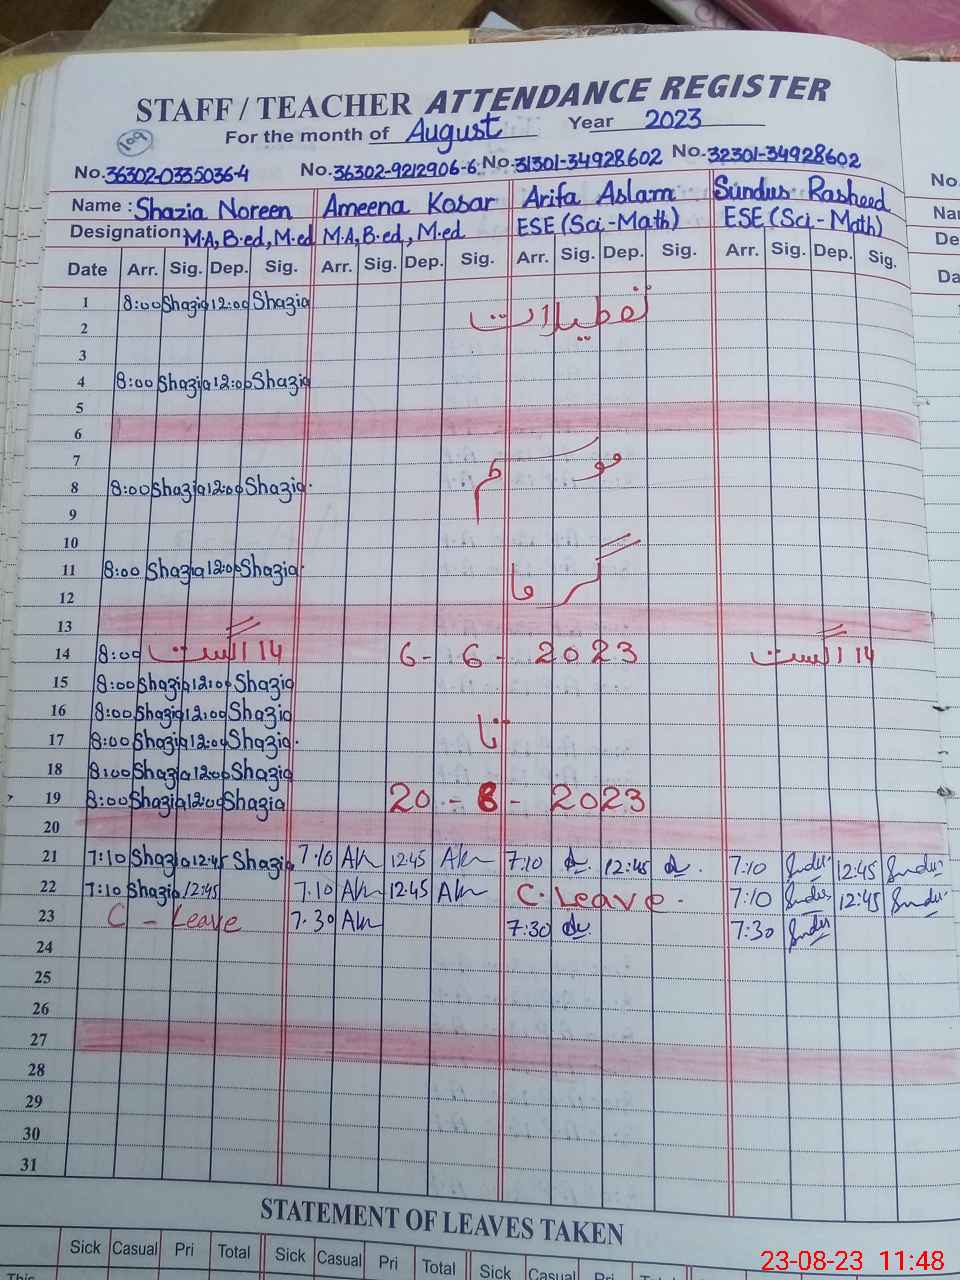 STAFF / TEACHER ATTENDANCE REGISTER
109 For the month of August Year 2023
No. 36302-0335036-4 No. 36302-9212906-6 No. 31301-34928602 No. 32301-34928602 No.
Name : Shazia Noreen Ameena Kosar Arifa Aslam Sundus Rasheed Nar
Designation M.A, B.ed, M.ed M.A, B.ed, M.ed ESE (Sci-Math) ESE (Sci-Math) De
Date Arr. Sig. Dep. Sig. Arr. Sig. Dep. Sig. Arr. Sig. Dep. Sig. Arr. Sig. Dep. Sig. Da
1 8:00 Shazia 12:00 Shazia تعطیلات
2
3
4 8:00 Shazia 12:00 Shazia
5
6
7 موسم
8 8:00 Shazia 12:00 Shazia
9
10
11 8:00 Shazia 12:00 Shazia گرما
12
13
14 8:00 14 اگست 6 - 6 - 2023 14 اگست
15 8:00 Shazia 12:00 Shazia
16 8:00 Shazia 12:00 Shazia
17 8:00 Shazia 12:00 Shazia تا
18 8:00 Shazia 12:00 Shazia
19 8:00 Shazia 12:00 Shazia 20 - 8 - 2023
20
21 7:10 Shazia 12:45 Shazia 7:10 12:45 7:10 12:45 7:10 Sundus 12:45 Sundus
22 7:10 Shazia 12:45 7:10 12:45 C. Leave. 7:10 Sundus 12:45 Sundus
23 C - Leave 7.30 7:30 7:30 Sundus
24
25
26
27
28
29
30
31
STATEMENT OF LEAVES TAKEN
Sick Casual Pri Total Sick Casual Pri Total Sick Casual Pri Total
This
23-08-23 11:48